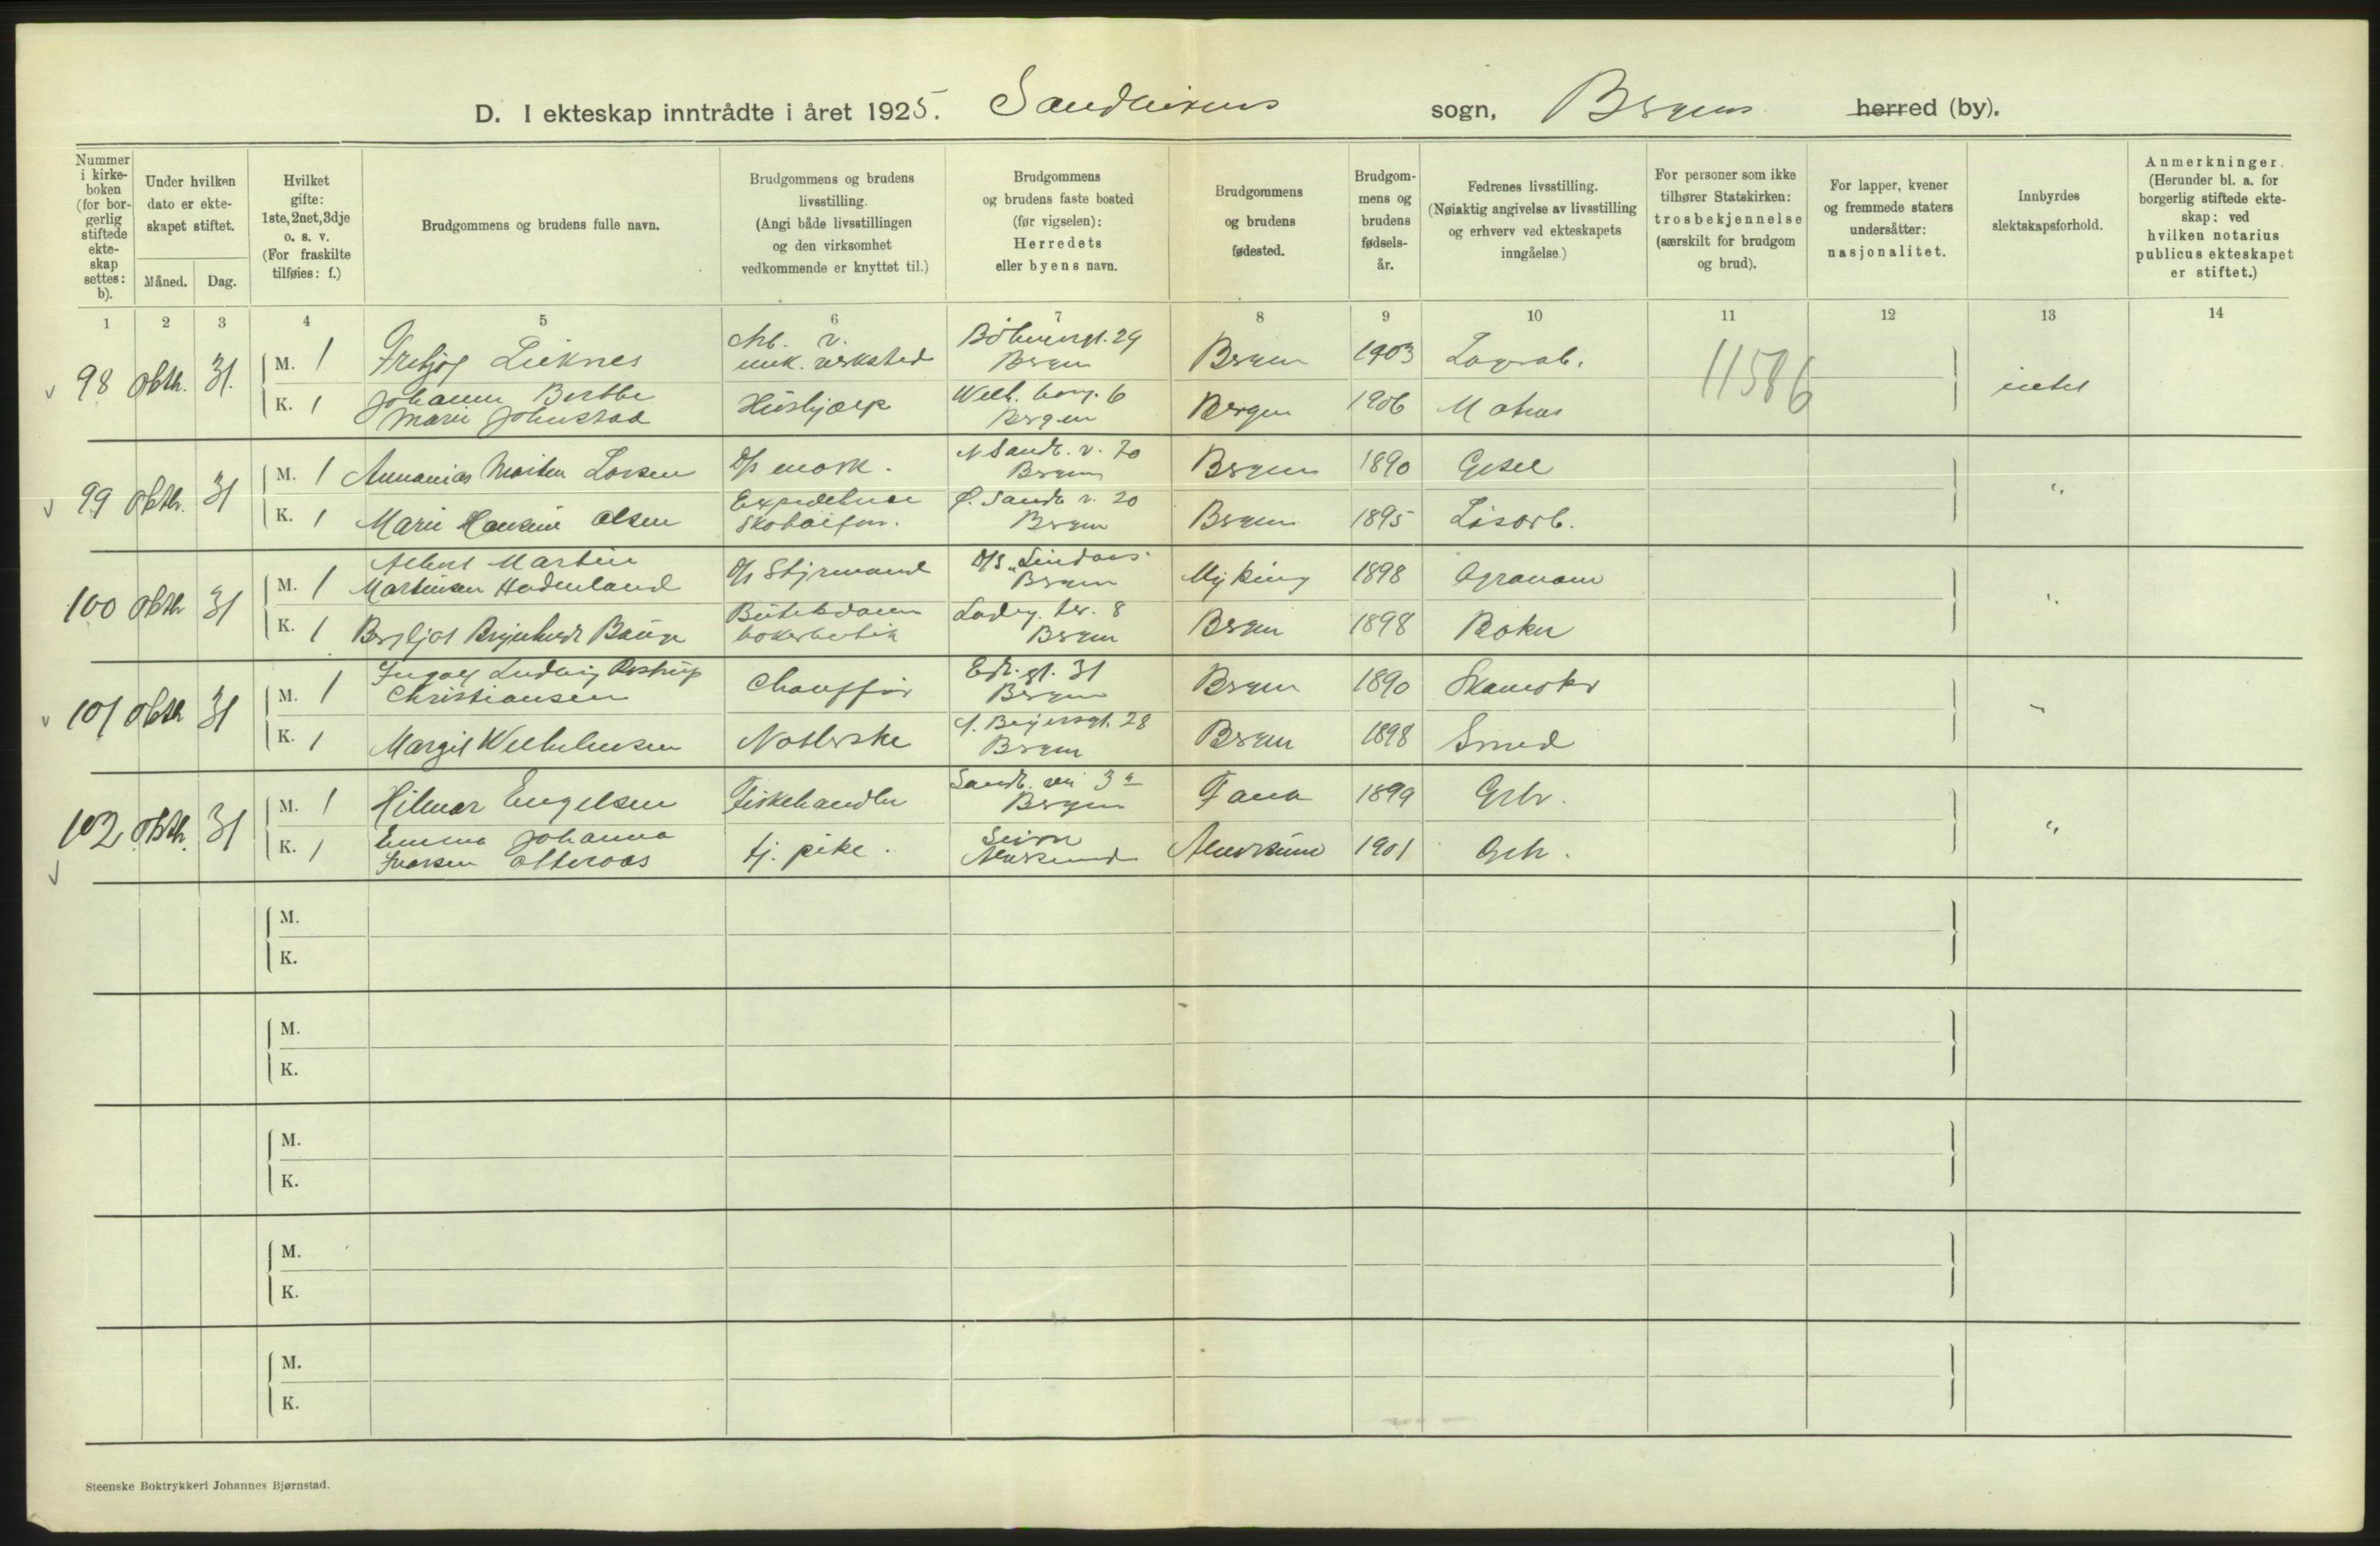 D. I ekteskap inntrådte i året 1925. Sandvikens sogn, Bergens herred (by).
Nummer i kirkeboken (for borgerlig stiftede ekteskap settes: b).
Under hvilken dato er ekteskapet stiftet.
Måned.
Dag.
Hvilket gifte: 1ste, 2net, 3dje o. s. v. (For fraskilte tilføies: f.)
Brudgommens og brudens fulle navn.
Brudgommens og brudens livsstilling. (Angi både livsstillingen og den virksomhet vedkommende er knyttet til.)
Brudgommens og brudens faste bosted (før vigselen): Herredets eller byens navn.
Brudgommens og brudens fødested.
Brudgommens og brudens fødselsår.
Fedrenes livsstilling. (Nøiaktig angivelse av livsstilling og erhverv ved ekteskapets inngåelse.)
For personer som ikke tilhører Statskirken: trosbekjennelse (særskilt for brudgom og brud).
For lapper, kvener og fremmede staters undersåtter: nasjonalitet.
Innbyrdes slektskapsforhold.
Anmerkninger. (Herunder bl. a. for borgerlig stiftede ekteskap: ved hvilken notarius publicus ekteskapet er stiftet.)
1 2 3 4 5 6 7 8 9 10 11 12 13 14
98 Oktb. 31. M. 1 Liknes Arb. v. mek. verksted 29 Bergen Bergen 1903 11586 intet
K. 1 Johanne Berthe Marie Johnstad Hushjælp Welh. 6 Bergen Bergen 1906 Matros
99 Oktb. 31 M. 1 Annanias Larsen D/s mask. N Sandv. v. 20 Bergen Bergen 1890 Gesel "
K. 1 Marie Hansine Olsen Ø. Sandv. v. 20 Bergen Bergen 1895 Løsarb.
100 Oktb 31 M. 1 Albert Martin Martinsen Hodneland D/s Styrmand D/S "Lindaas" Bergen Myking 1898 Agronom "
K. 1 Bergljot Bauge Butikdame Ladeg. ter. 8 Bergen Bergen 1898 Baker
101 Oktb 31 M. 1 Ingolf Ludvig Rostrup Christiansen Chauffør 31 Bergen Bergen 1890 Skomaker "
K. 1 Margit Wilhelmsen Natlerske Beyersgt. 28 Bergen Bergen 1898 Smed
102 Oktb. 31 M. 1 Hilmar Engelsen Fiskehandler Sandv. vei 3a Bergen Fana 1899 Grbr. "
K. 1 Emma Johanna Ivarsen Atteraas tj. pike. Seim Alversund Alversund 1901 Gbr.
M.
K.
M.
K.
M.
K.
M.
K.
M.
K.
Steenske Boktrykkeri Johannes Bjørnstad.